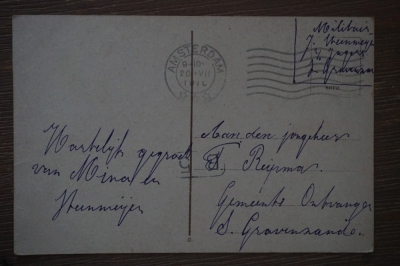 Militair
J. Steenmeijer
4e Jagers
s. Gravenzan
AMSTERDAM
1916
Hartelijk gegroet
van Mina en
Steenmeijer
Aan den jongeheer
Gemeente Ontvanger
S. Gravenzande.